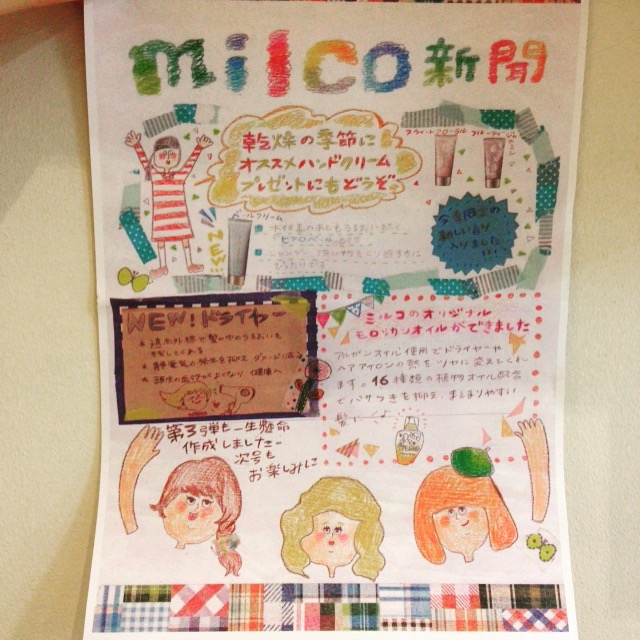 milco 新聞
乾燥の季節に
オススメハンドクリーム
プレゼントにもどうぞ。
スウィートフローラル
パールクリーム
今季限定の
新しい香り
入りました!!!
NEW!ドライヤー
遠赤外線で髪の中のうるおいを
静電気の発生を抑え ダメージ
頭皮の血行がよくなり 健康へ
ミルコのオリジナル
モロッカンオイルができました
アルガンオイル使用でドライヤーや
ヘアアイロンの熱をツヤに変えてくれ
ます。16種類の植物オイル配合
でパサつきを抑え、まとまりやすい
髪
第3弾も一生懸命
作成しました
次号も
お楽しみに